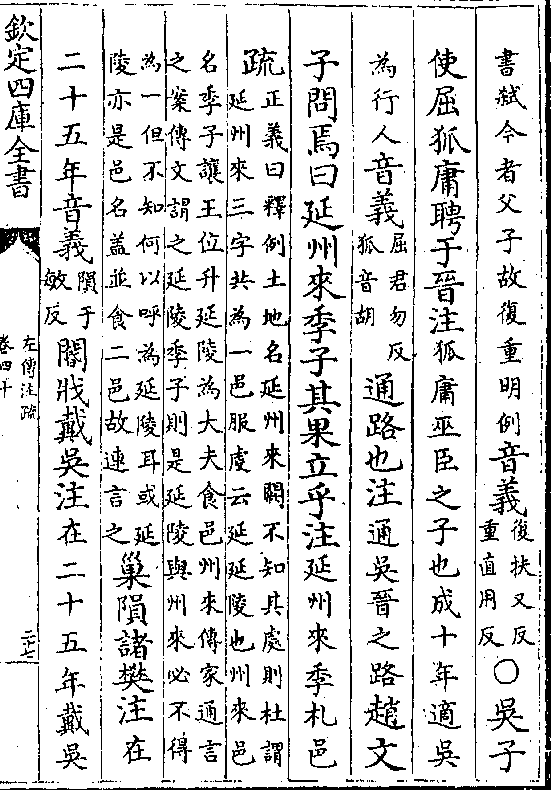 書弑今者父子故復重明例音義復扶又反重直用反○吳子
使屈狐庸聘于晉注狐庸巫臣之子也成十年適吳
為行人音義屈君勿反狐音胡通路也注通吳晉之路趙文
子問焉曰延州來季子其果立乎注延州來季札邑
疏正義曰釋例土地名延州來闕不知其處則杜謂
延州來三字共為一邑服虔云延延陵也州來邑
名季子讓王位升延陵為大夫食邑州來傳家通言
之案傳文謂之延陵季子則是延陵與州來必不得
為一但不知何以呼為延陵耳或延
陵亦是邑名蓋並食二邑故連言之巢隕諸樊注在
二十五年音義隕于敏反閽戕戴吳注在二十五年戴吳
欽定四庫全書
左傳注疏
卷四十
二十七